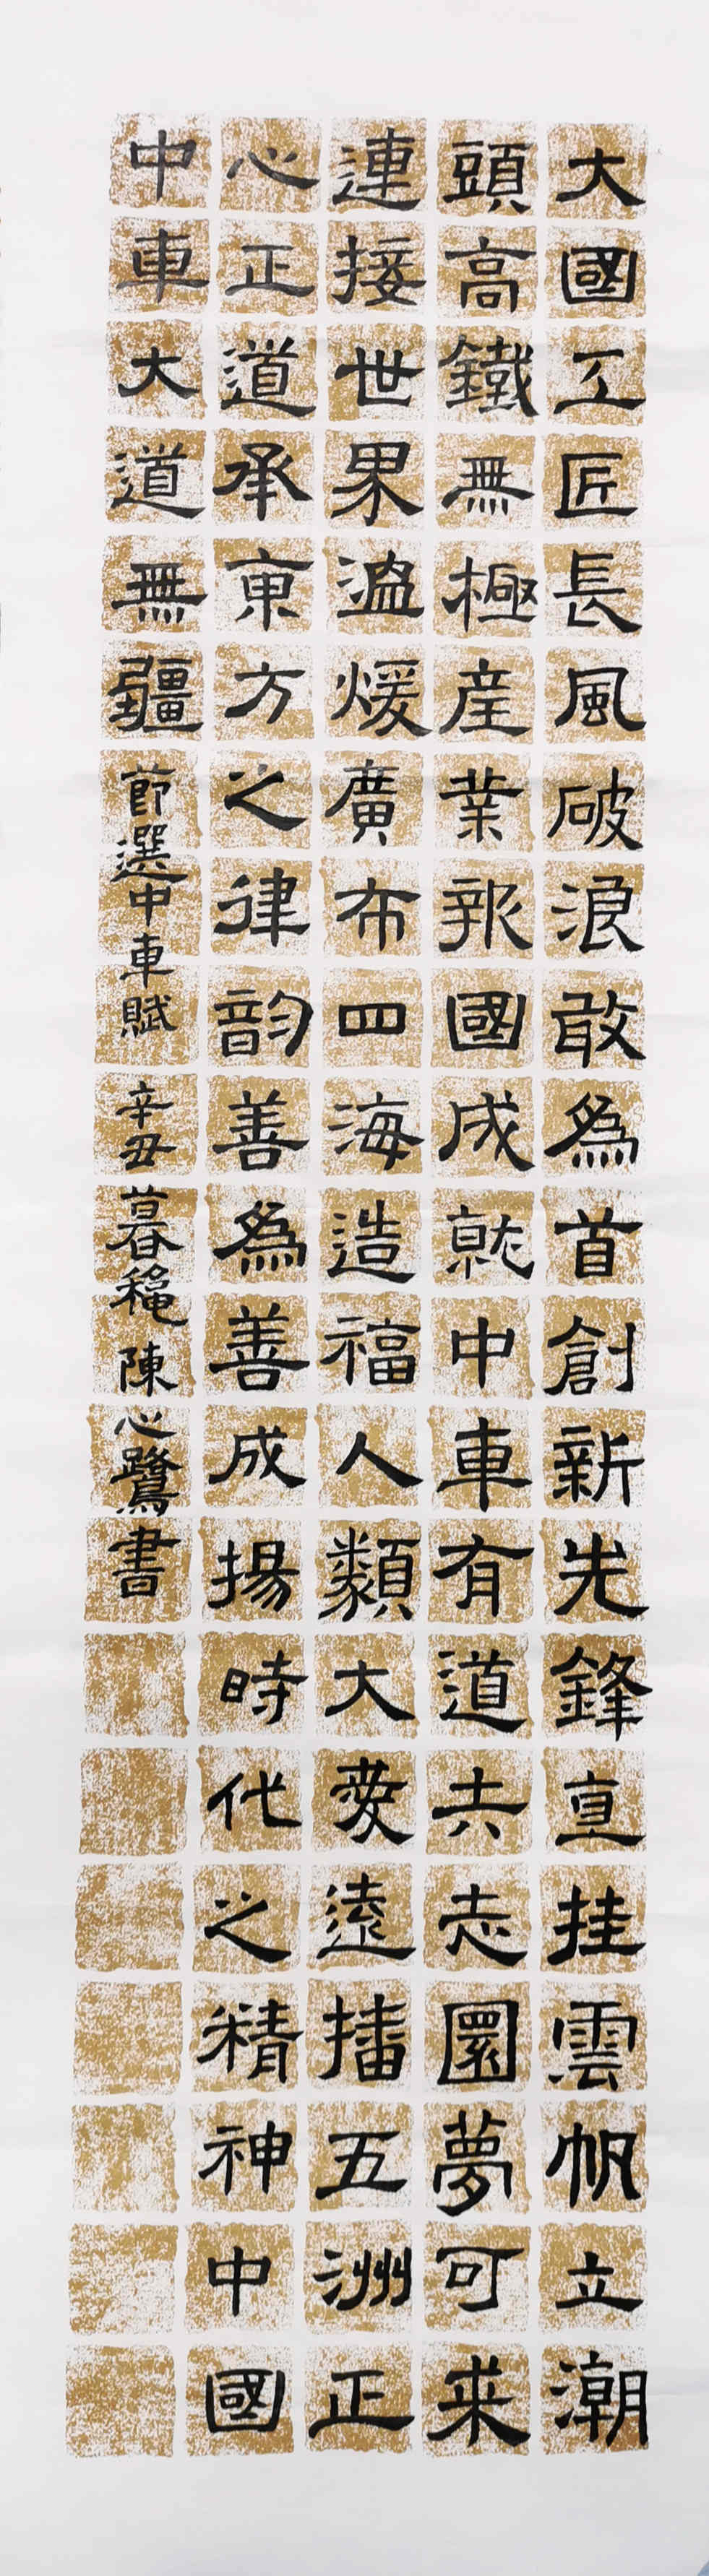 大國工匠長風破浪敢為首創新先鋒直挂雲帆立潮
頭高鐵無極産業報國成就中車有道去志圜夢可来
連接世界溫煖廣布四海造福人類大愛遠播五洲正
心正道承東方之律韵善為善成揚時代之精神中國
中車大道無疆
節選中車賦 辛丑暮穐 陳心鷺書